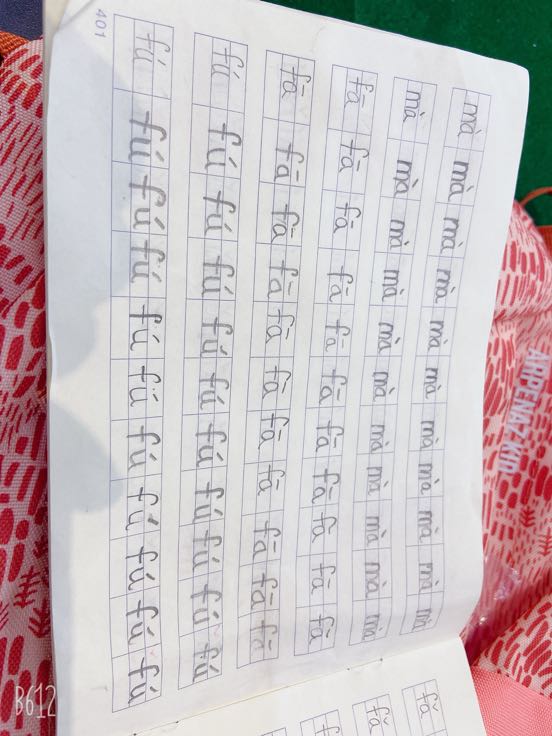 mà mà mà mà mà mà mà mà mà mà mà
mà mà mà mà mà mà mà mà mà mà mà
fā fā fā fā fā fā fā fā fā fā fā
fā fā fā fā fā fā fā fā fā fā fā
fú fú fú fú fú fú fú fú fú fú fú
fú fú fú fú fú fú fú fú fú fú fú
401
fǎ
fǎ
ARPENAZ KID
B612